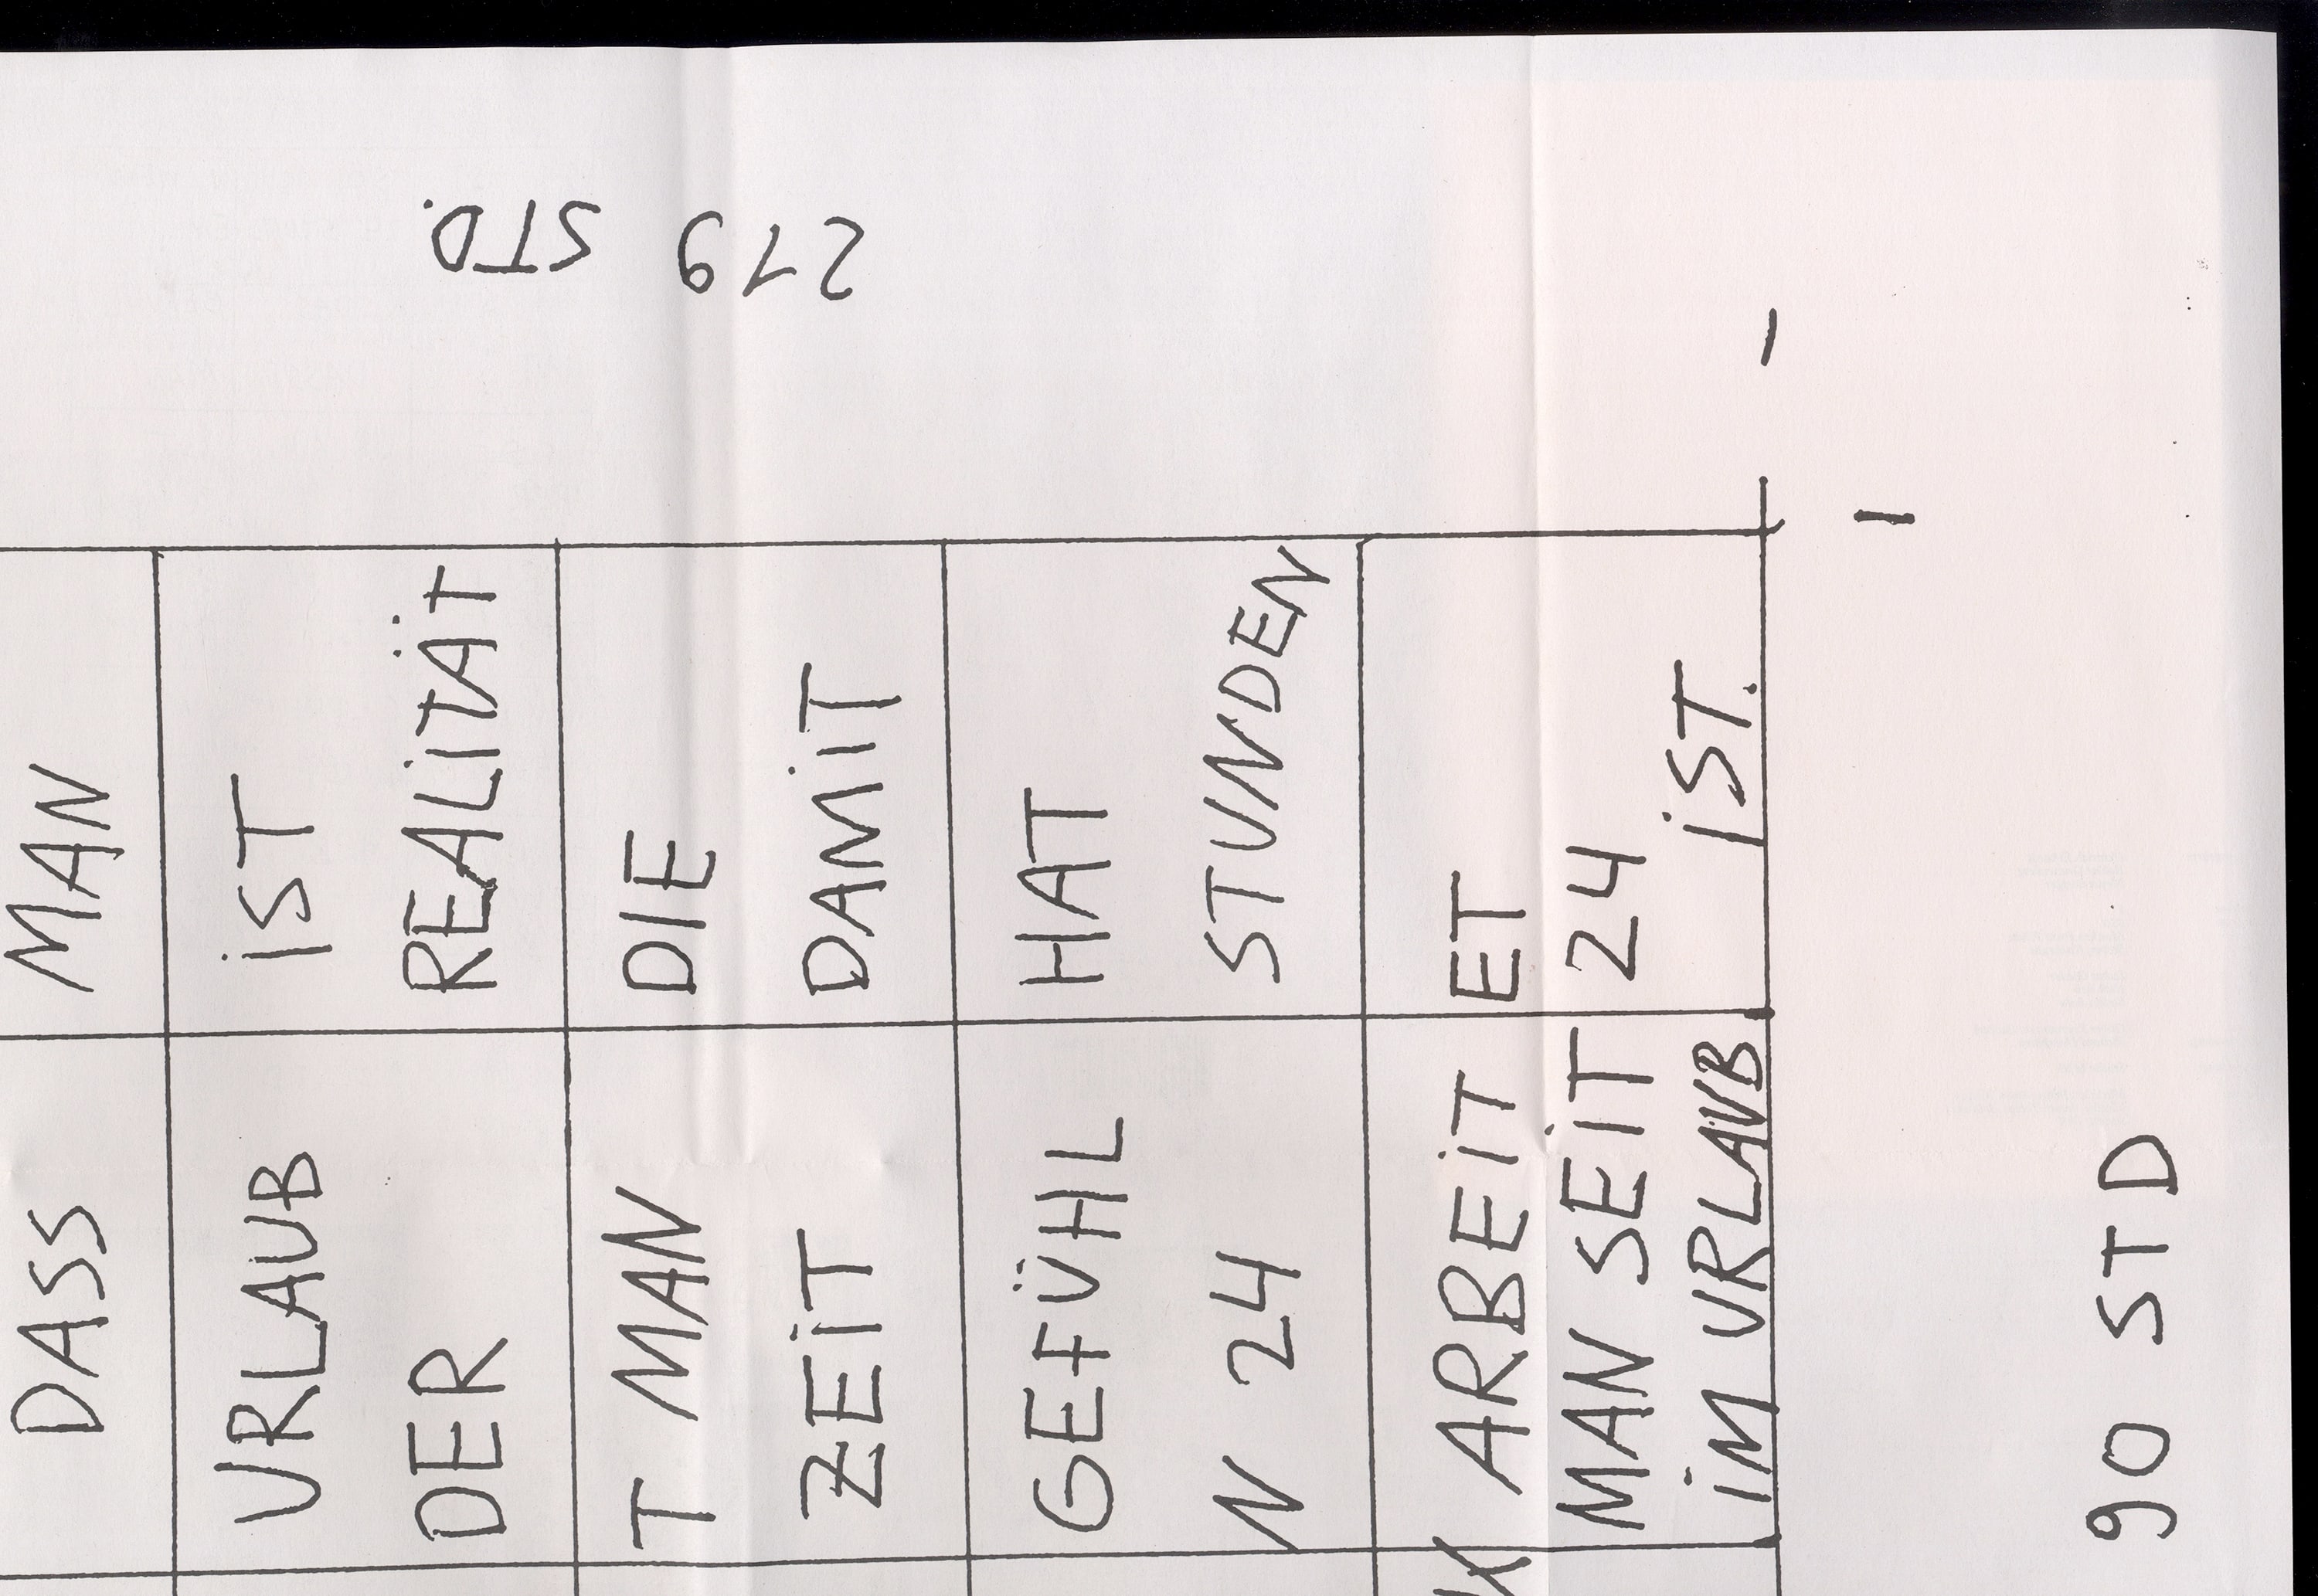 219 STD.
DASS MAN
URLAUB IST
DER REALITÄT
T MAN DIE
ZEIT DAMIT
GEFÜHL HAT
N 24 STUNDEN
K ARBEIT ET
MAN SEIT 24
IM URLAUB IST.
90 STD